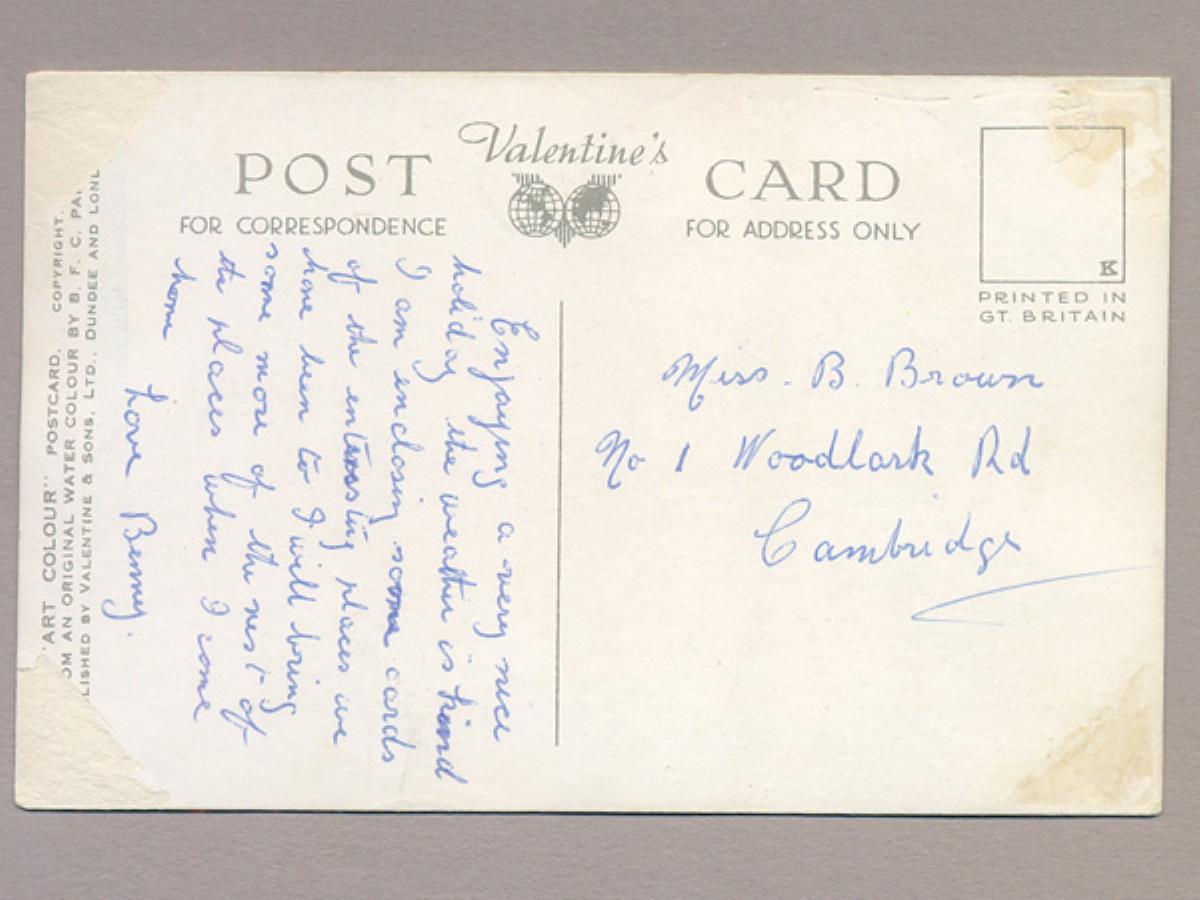 Valentine's
POST CARD
FOR CORRESPONDENCE
FOR ADDRESS ONLY
K
PRINTED IN
GT. BRITAIN
"ART COLOUR" POSTCARD. COPYRIGHT.
OM AN ORIGINAL WATER COLOUR BY B. F. C. PAI
LISHED BY VALENTINE & SONS. LTD., DUNDEE AND LONL
Enjoying a very nice
holiday the weather is kind
I am enclosing some cards
of the enteresting places we
have been to I will bring
some more of the rest of
the places when I come
home
Love Benny.
Miss. B. Brown
No 1 Woodlark Rd
Cambridge